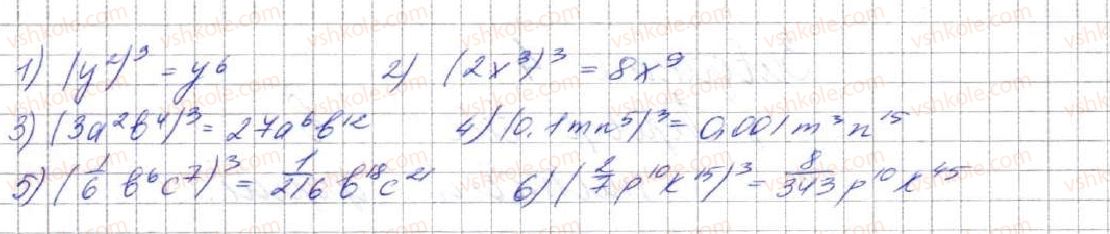 1) (y²)³ = y⁶ 2) (2x³)³ = 8x⁹
3) (3a²b⁴)³ = 27a⁶b¹² 4) (0,1mn⁵)³ = 0,001m³n¹⁵
5) (1/6 b⁶c⁷)³ = 1/216 b¹⁸c²¹ 6) (2/7 p¹⁰k¹⁵)³ = 8/343 p¹⁰k⁴⁵